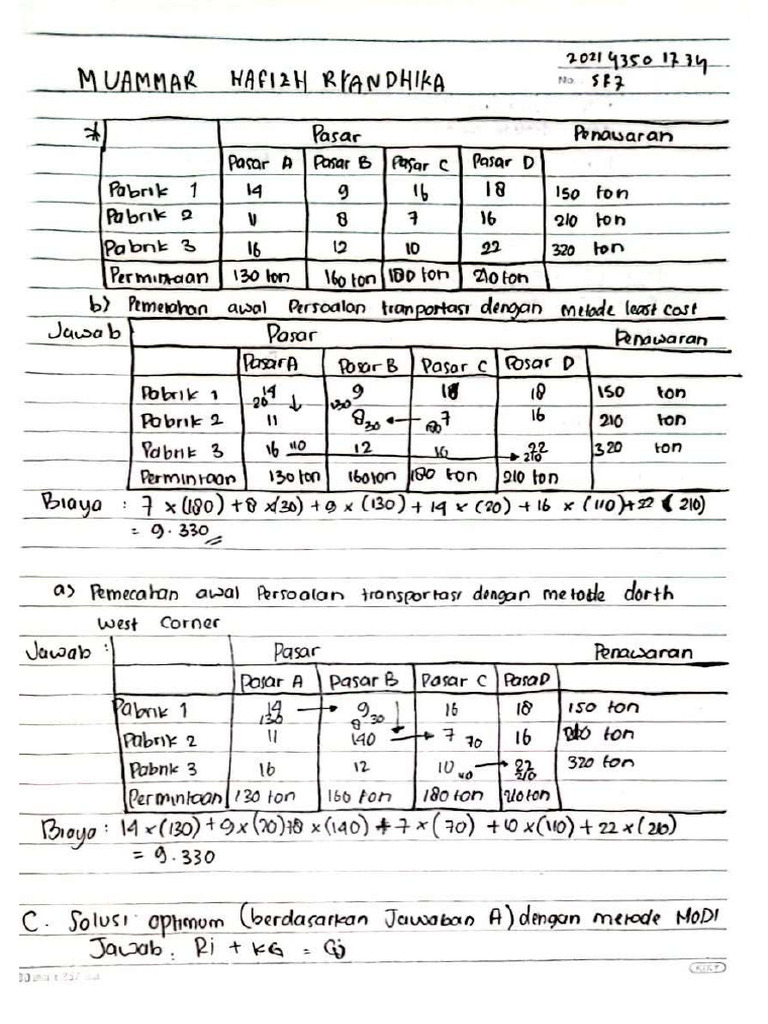 2021 4350 1734
MUAMMAR HAFIZH RYANDHIKA
No. SF7
* Pasar Penawaran
Pasar A Pasar B Pasar C Pasar D
Pabrik 1 14 9 16 18 150 ton
Pabrik 2 11 8 7 16 210 ton
Pabrik 3 16 12 10 22 320 ton
Permintaan 130 ton 160 ton 180 ton 210 ton
b) Pemecahan awal Persoalan tranportasi dengan metode least cost
Jawab Pasar Penawaran
Pasar A Pasar B Pasar C Pasar D
Pabrik 1 14 9 16 18 150 ton
20 130
Pabrik 2 11 8 30 7 180 16 210 ton
Pabrik 3 16 110 12 10 22 320 ton
210
Permintaan 130 ton 160 ton 180 ton 210 ton
Biaya : 7 x (180) + 8 x (30) + 9 x (130) + 14 x (20) + 16 x (110) + 22 x (210)
= 9.330
a) Pemecahan awal Persoalan transportasi dengan metode dorth
west corner
Jawab : Pasar Penawaran
Pasar A Pasar B Pasar C Pasar D
Pabrik 1 14 9 16 18 150 ton
130 8 30
Pabrik 2 11 140 7 70 16 210 ton
Pabrik 3 16 12 10 110 22 320 ton
210
Permintaan 130 ton 160 ton 180 ton 210 ton
Biaya : 14 x (130) + 9 x (20) + 8 x (140) + 7 x (70) + 10 x (110) + 22 x (210)
= 9.330
C. Solusi optimum (berdasarkan Jawaban A) dengan metode MODI
Jawab : Ri + KG = Cij
KIKY